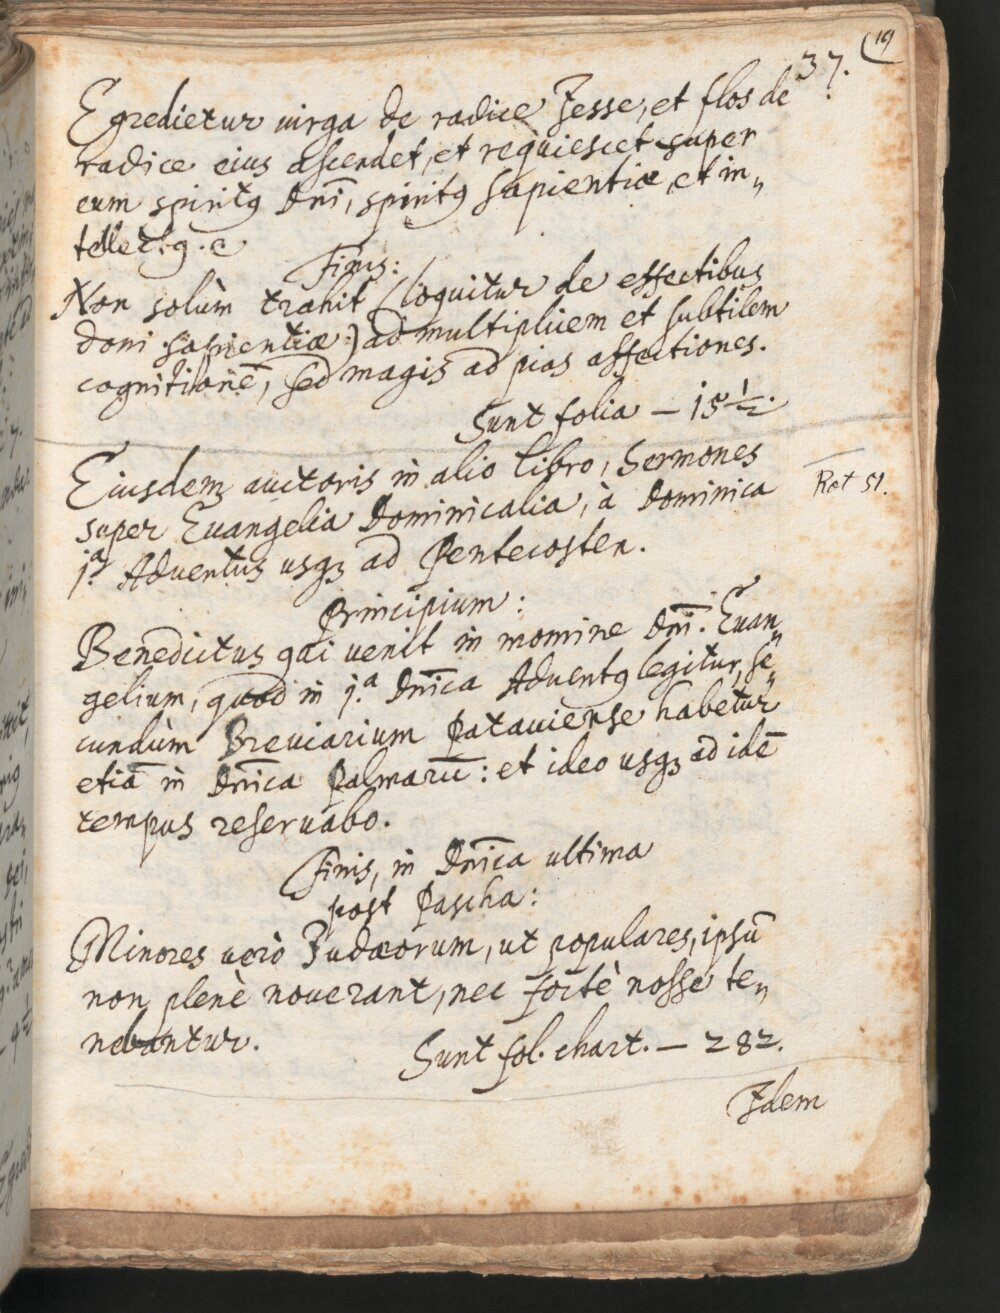 (19
37.
Egredietur uirga de radice Jesse, et flos de
radice eius ascendet, et requiescet super
eum spiritꝯ Dnī, spiritꝯ sapientiæ, et in„
tellect.9.c
Finis:
Non solùm trahit (loquitur de effectibus
doni sapientiæ) ad multiplicem et subtilem
cognitionē, sed magis ad pias affectiones.
Sunt folia – 15 ½.
Eiusdem auctoris in alio libro, Sermones
super Euangelia Dominicalia, à Dominica
j.ª Aduentus usqꝫ ad Pentecosten.
Rot 51.
Principium:
Benedictus qui uenit in momine Dnī. Euan„
gelium, quod in j.ª Dnīca Aduentꝯ legitur, se„
cundùm Breuiarium Patauiense habetur
etiā in Dnīca Palmarū: et ideo usqꝫ ad idē
tempus reseruabo.
Finis, in Dnīca ultima
post Pascha:
Minores uerò Judæorum, ut populares, ipsū
non plenè nouerant, nec fortè nosse te„
nebantur.
Sunt fol. chart. – 282.
Idem